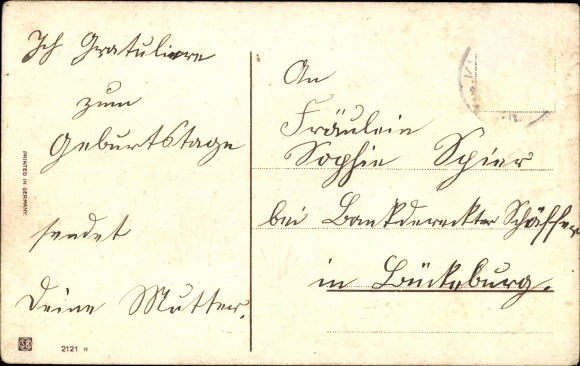 Ich Gratuliere
zum
Geburtstage
sendet
Deine Mutter.
An
Fräulein
Sophie Spier
bei Bankdereckter Schäffer
in Bückeburg.
PRINTED IN GERMANY
2121 H